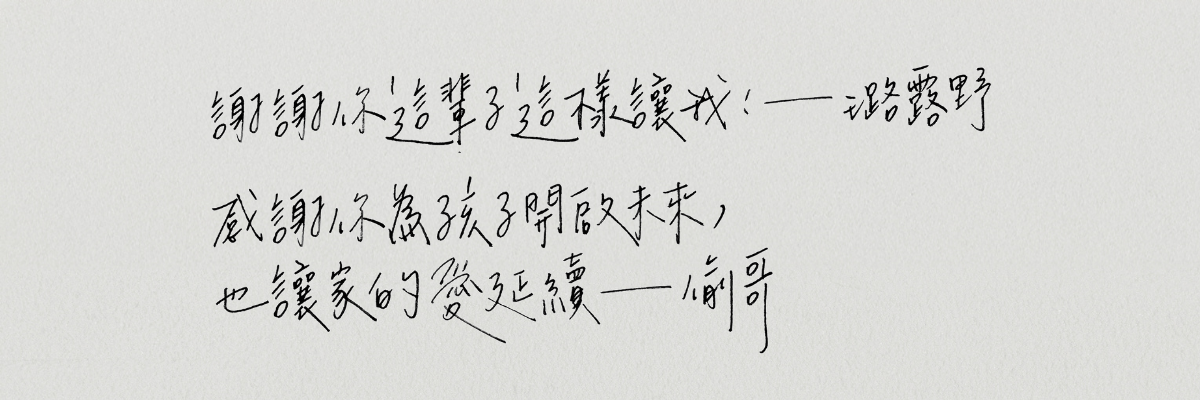 謝謝你這輩子這樣讓我！——璐露野
感謝你為孩子開啟未來，
也讓家的愛延續——偷哥